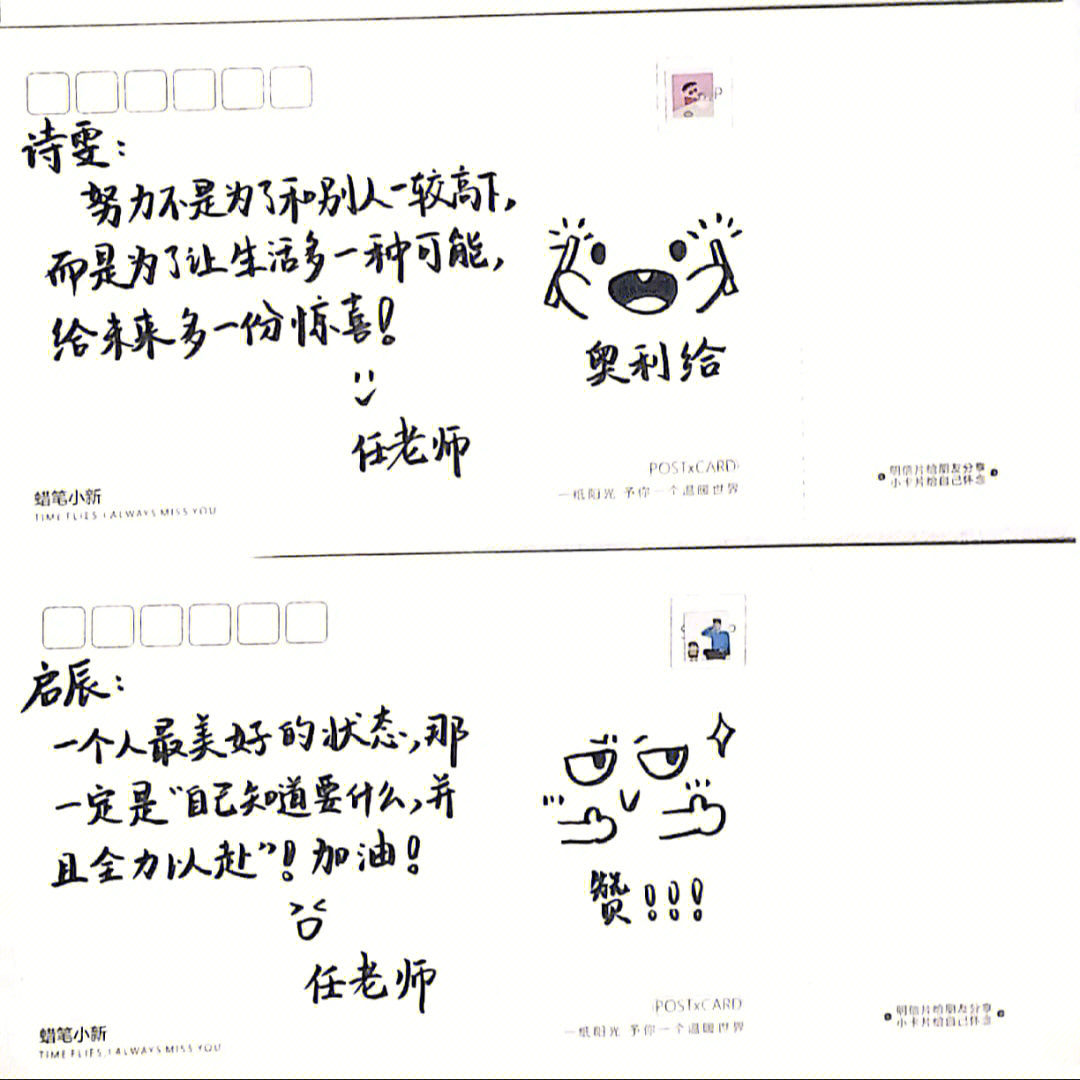 诗雯：
努力不是为了和别人一较高下，
而是为了让生活多一种可能，
给未来多一份惊喜！
奥利给
任老师
POSTxCARD
一纸阳光 予你一个温暖世界
明信片给朋友分享
小卡片给自己怀念
蜡笔小新
TIME FLIES, I ALWAYS MISS YOU
启辰：
一个人最美好的状态，那
一定是“自己知道要什么，并
且全力以赴”！加油！
赞！！！
任老师
POSTxCARD
一纸阳光 予你一个温暖世界
明信片给朋友分享
小卡片给自己怀念
蜡笔小新
TIME FLIES, I ALWAYS MISS YOU